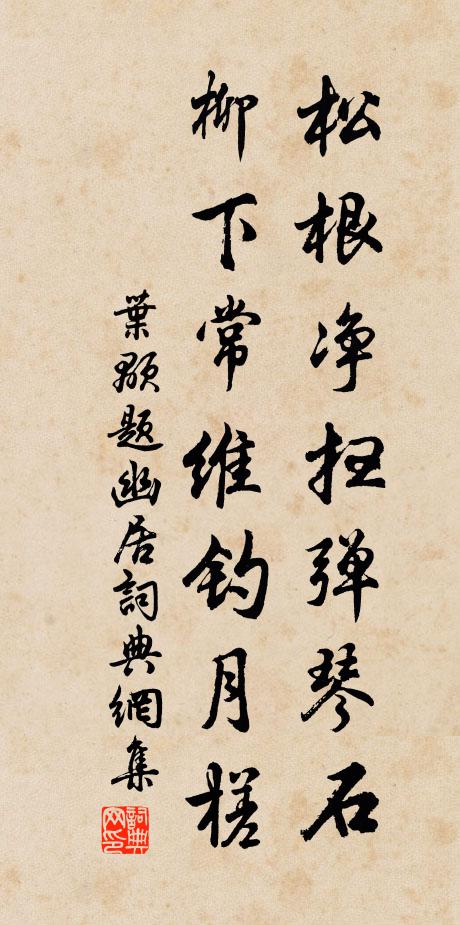 松根净扫弹琴石
柳下常維钓月槎
葉顒題幽居詞典網集
詞典网印